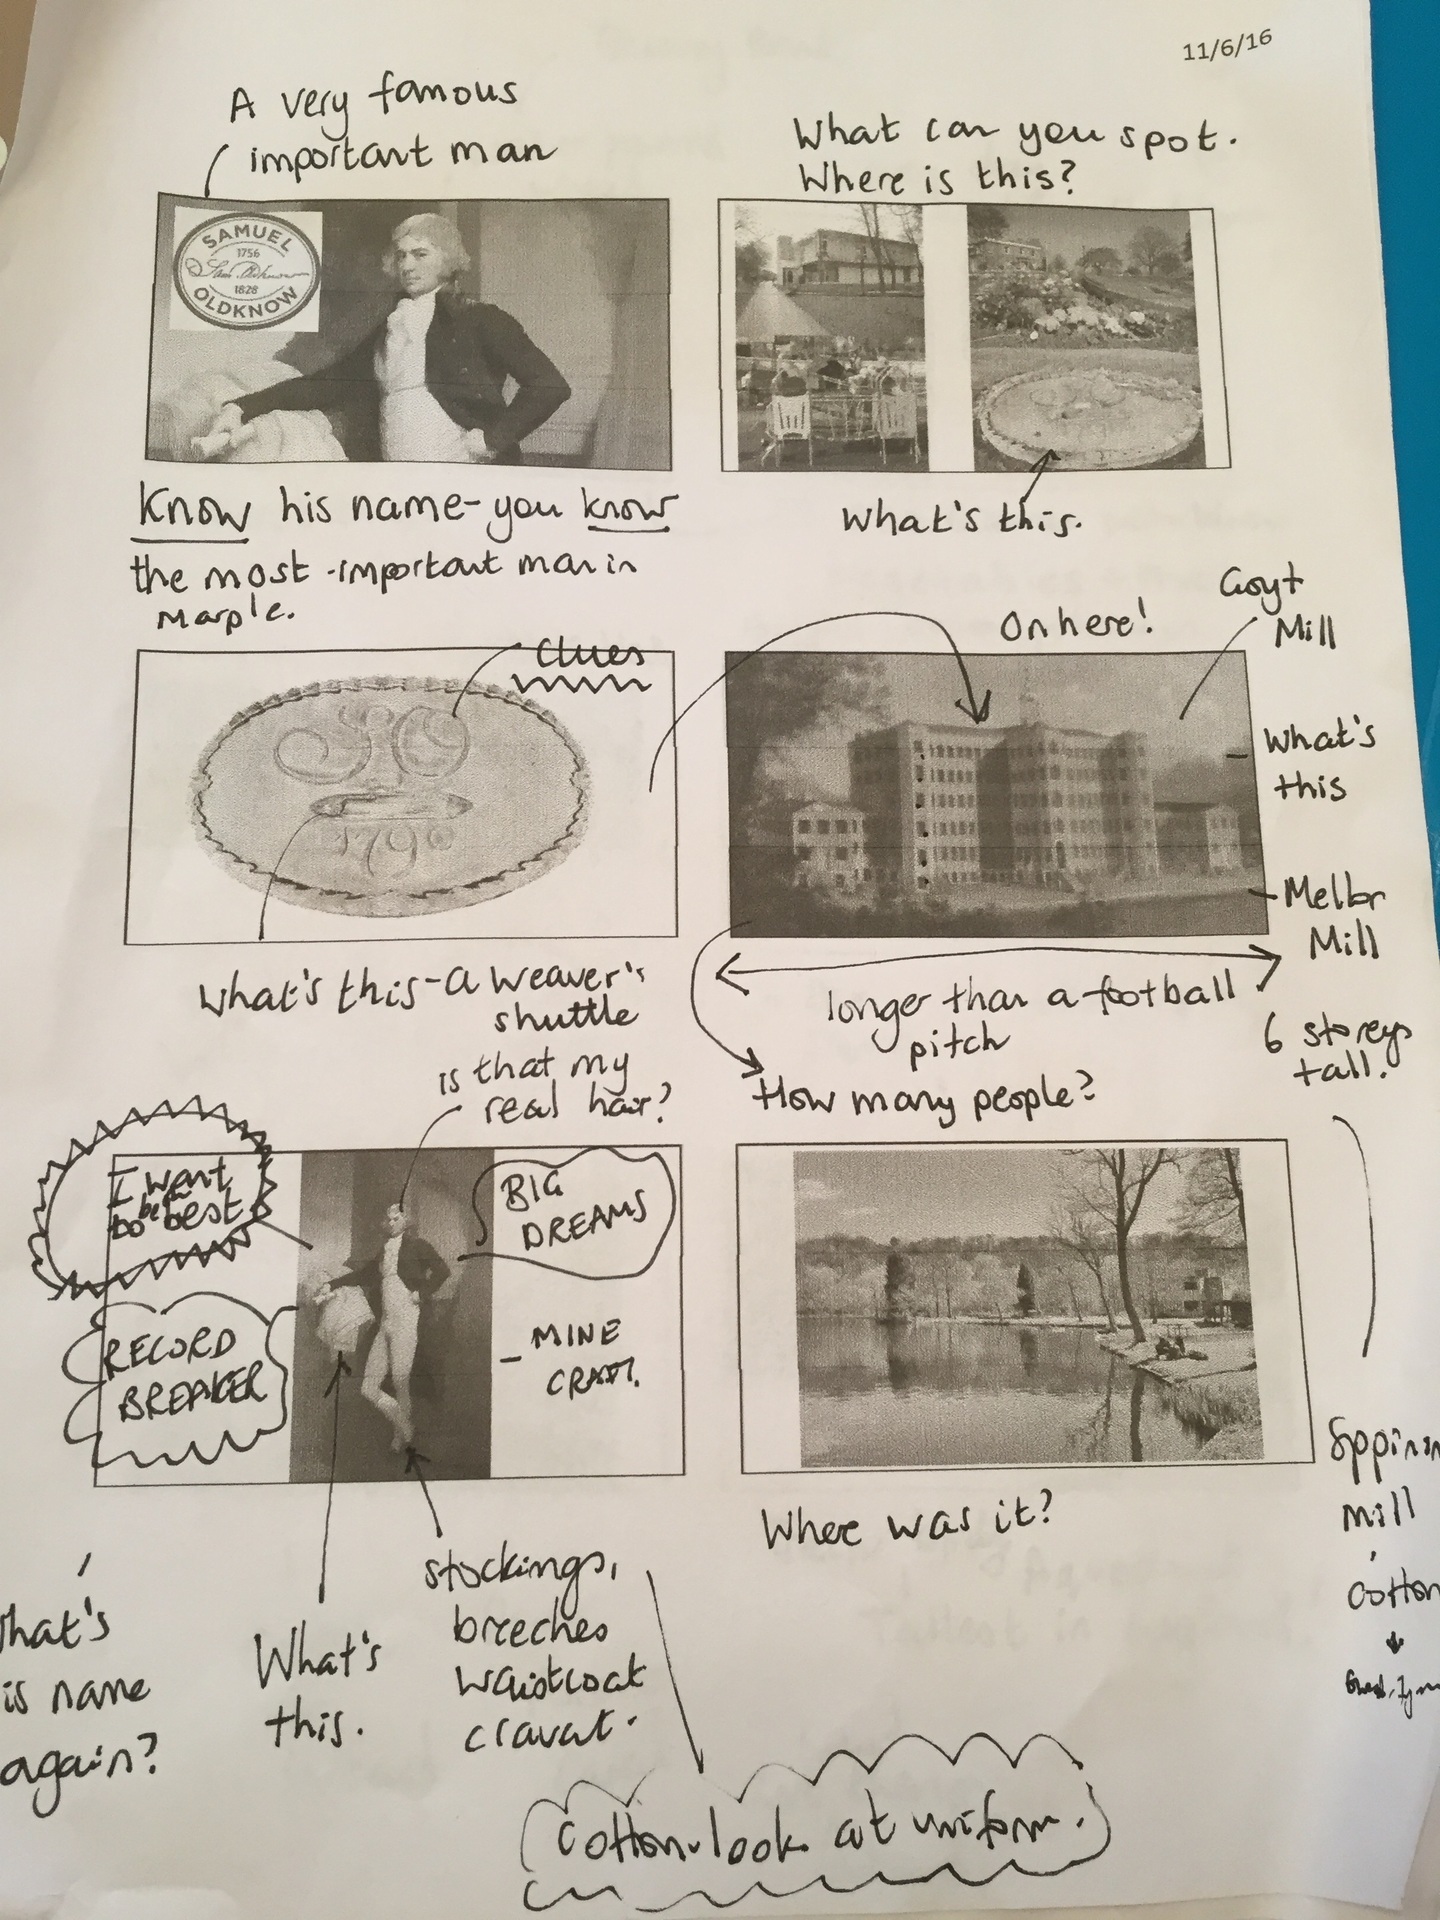 11/6/16
A very famous
important man
What can you spot.
Where is this?
SAMUEL
1756
1828
OLDKNOW
Know his name - you know
the most important man in
Marple.
What's this.
clues
SO
1790
On here!
Goyt
Mill
What's
this
Mellor
Mill
What's this - a weaver's
shuttle
longer than a football
pitch
6 storeys
tall.
How many people?
is that my
real hair?
I want
be
best
BIG
DREAMS
RECORD
BREAKER
- MINE
CRAFT.
Where was it?
mill
cotton
stockings,
breeches
waistcoat
cravat.
What's
this.
name
again?
cotton - look at uniform.